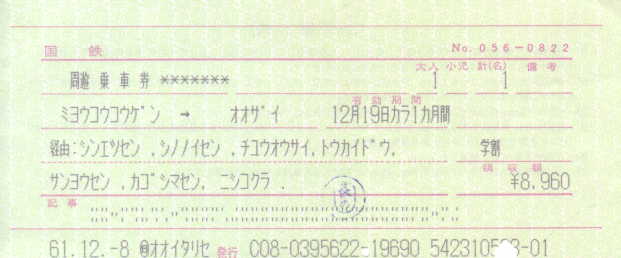 国鉄 No.056-0822
大人 小児 計(名) 備考
周遊 乗車券 ******* 1 1
有効期間
ミヨウコウコウゲン → オオザイ 12月19日カラ1カ月間
経由:シンエツセン ,シノノイセン ,チユウオウサイ,トウカイドウ, 学割
領収額
サンヨウセン ,カゴシマセン, ニシコクラ . ¥8,960
記事
61.12.-8 オオイタリセ 発行 C08-0395622-19690